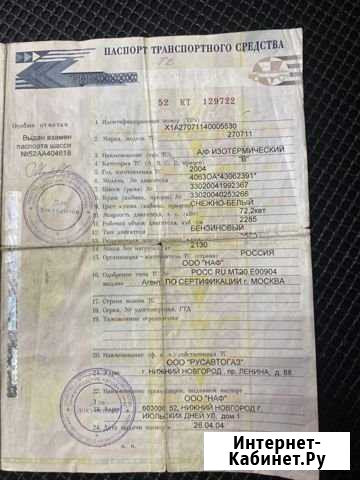 ПАСПОРТ ТРАНСПОРТНОГО СРЕДСТВА
52 КТ 129722
Особые отметки
Выдан взамен
паспорта шасси
№52АА404618
1. Идентификационный номер (VIN) X1A27071140005530
2. Марка, модель ТС 270711
3. Наименование (тип ТС) АФ ИЗОТЕРМИЧЕСКИЙ
4. Категория ТС (А, В, С, D, прицеп) "В"
5. Год изготовления ТС 2004
6. Модель, № двигателя 40630А*43062391*
7. Шасси (рама) № 33020041992367
8. Кузов (кабина, прицеп) № 33020040253266
9. Цвет кузова (кабины, прицепа) СНЕЖНО-БЕЛЫЙ
10. Мощность двигателя, л. с. (кВт) 72.2квт
11. Рабочий объем двигателя, куб. см 2285
12. Тип двигателя БЕНЗИНОВЫЙ
14. Масса без нагрузки, кг 2130
15. Организация - изготовитель ТС (страна) РОССИЯ
ООО "НАФ"
16. Одобрение типа ТС № РОСС RU MT20 E00904
выдано Агент. ПО СЕРТИФИКАЦИИ г. МОСКВА
17. Страна вывоза ТС
18. Серия, № удостоверения, ГТД
19. Таможенные ограничения
20. Наименование (ф. и. о.) собственника ТС
ООО "РУСАВТОГАЗ"
21. Адрес г. НИЖНИЙ НОВГОРОД, пр. ЛЕНИНА, д. 88
22. Наименование организации, выдавшей паспорт
ООО "НАФ"
23. Адрес 603000 52, НИЖНИЙ НОВГОРОД г.
ИЮЛЬСКИХ ДНЕЙ УЛ, дом 1
24. Дата выдачи паспорта 26.04.04
М. П.
Интернет-
Кабинет.Ру